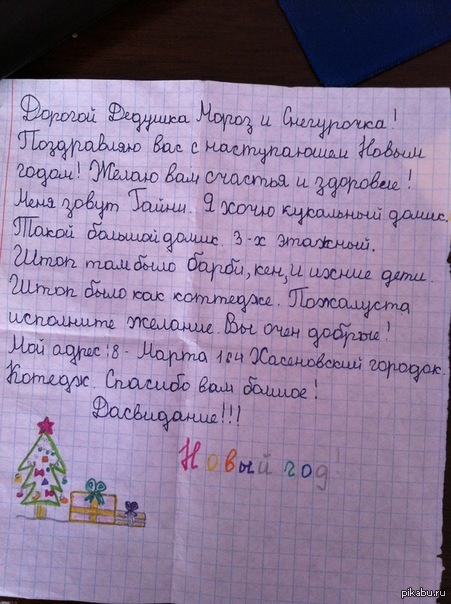 Дорогой Дедушка Мороз и Снегурочка!
Поздравляю вас с наступающем Новым
годом! Желаю вам счастья и здоровье!
Меня зовут Гайни. Я хочю кукальный домик.
Такой большой домик. 3-х этажный.
Штоп там было барби, кен, и ихние дети.
Штоп было как коттедже. Пожалуста
исполните желание. Вы очен добрые!
Мой адрес: 8 - Марта 164 Хасеновский городок.
Котедж. Спасибо вам болшое!
Дасвидание!!!
Новый год!
pikabu.ru